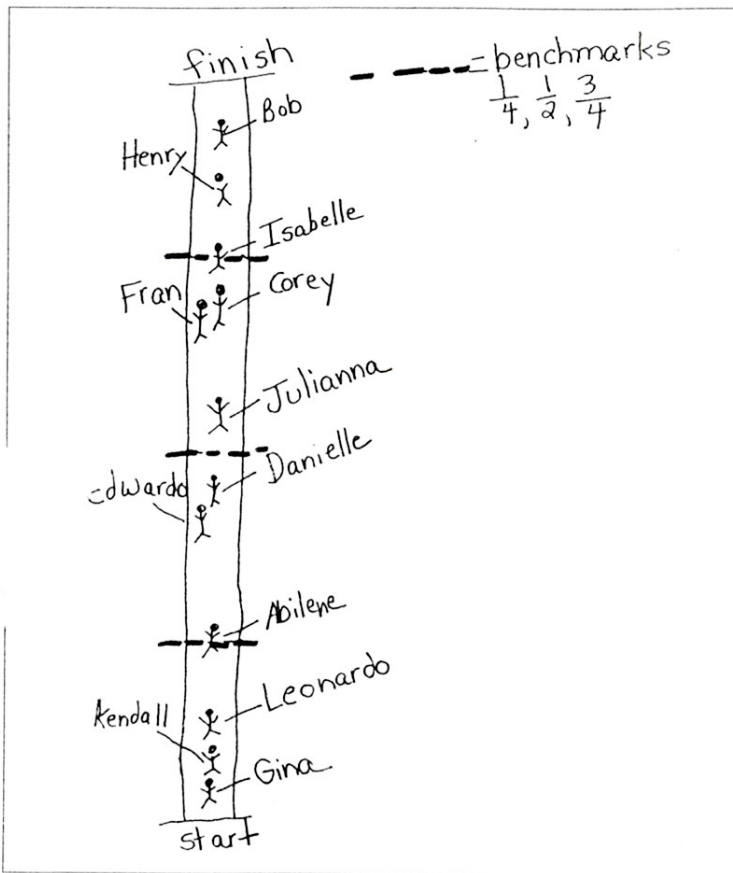 finish
= benchmarks
1/4, 1/2, 3/4
Bob
Henry
Isabelle
Fran
Corey
Julianna
Danielle
Edwardo
Abilene
Leonardo
Kendall
Gina
start